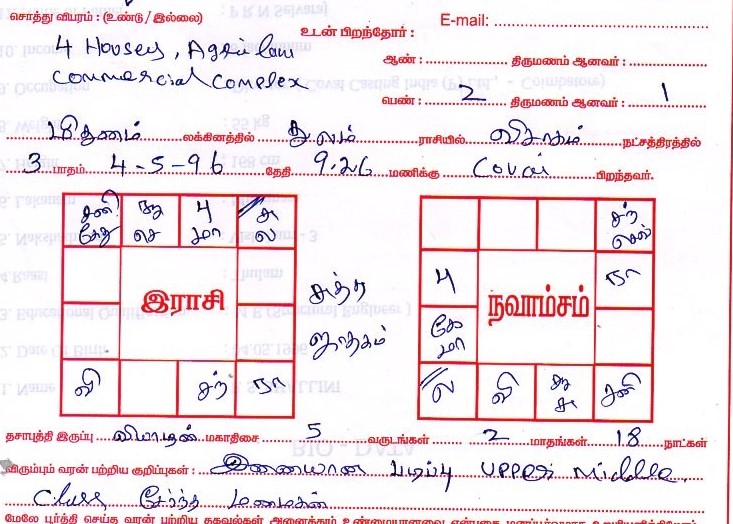 சொத்து விபரம் : (உண்டு / இல்லை)
உடன் பிறந்தோர் :
E-mail:
4 Houses, Agri land
Commercial Complex
ஆண் : திருமணம் ஆனவர் :
பெண் : 2 திருமணம் ஆனவர் : 1
மிதுனம் லக்கினத்தில் துலாம் ராசியில் விசாகம் நட்சத்திரத்தில்
3 பாதம் 4-5-96 தேதி 9.26 மணிக்கு Covai பிறந்தவர்.
சனி கேது
சூ செ
பு மா
சு ல
இராசி
வி
சந்
ரா
சுத்த
ஜாதகம்
சந் செவ்
பு
ரா
நவாம்சம்
கே மா
ல
வி
சூ சு
சனி
தசாபுத்தி இருப்பு வியாழன் மகாதிசை 5 வருடங்கள் 2 மாதங்கள் 18 நாட்கள்
விரும்பும் வரன் பற்றிய குறிப்புகள் : இணையான படிப்பு upper Middle
Class சேர்ந்த மணமகன்
மேலே பூர்த்தி செய்த வரன் பற்றிய தகவல்கள் அனைத்தும் உண்மையானவை என்பதை